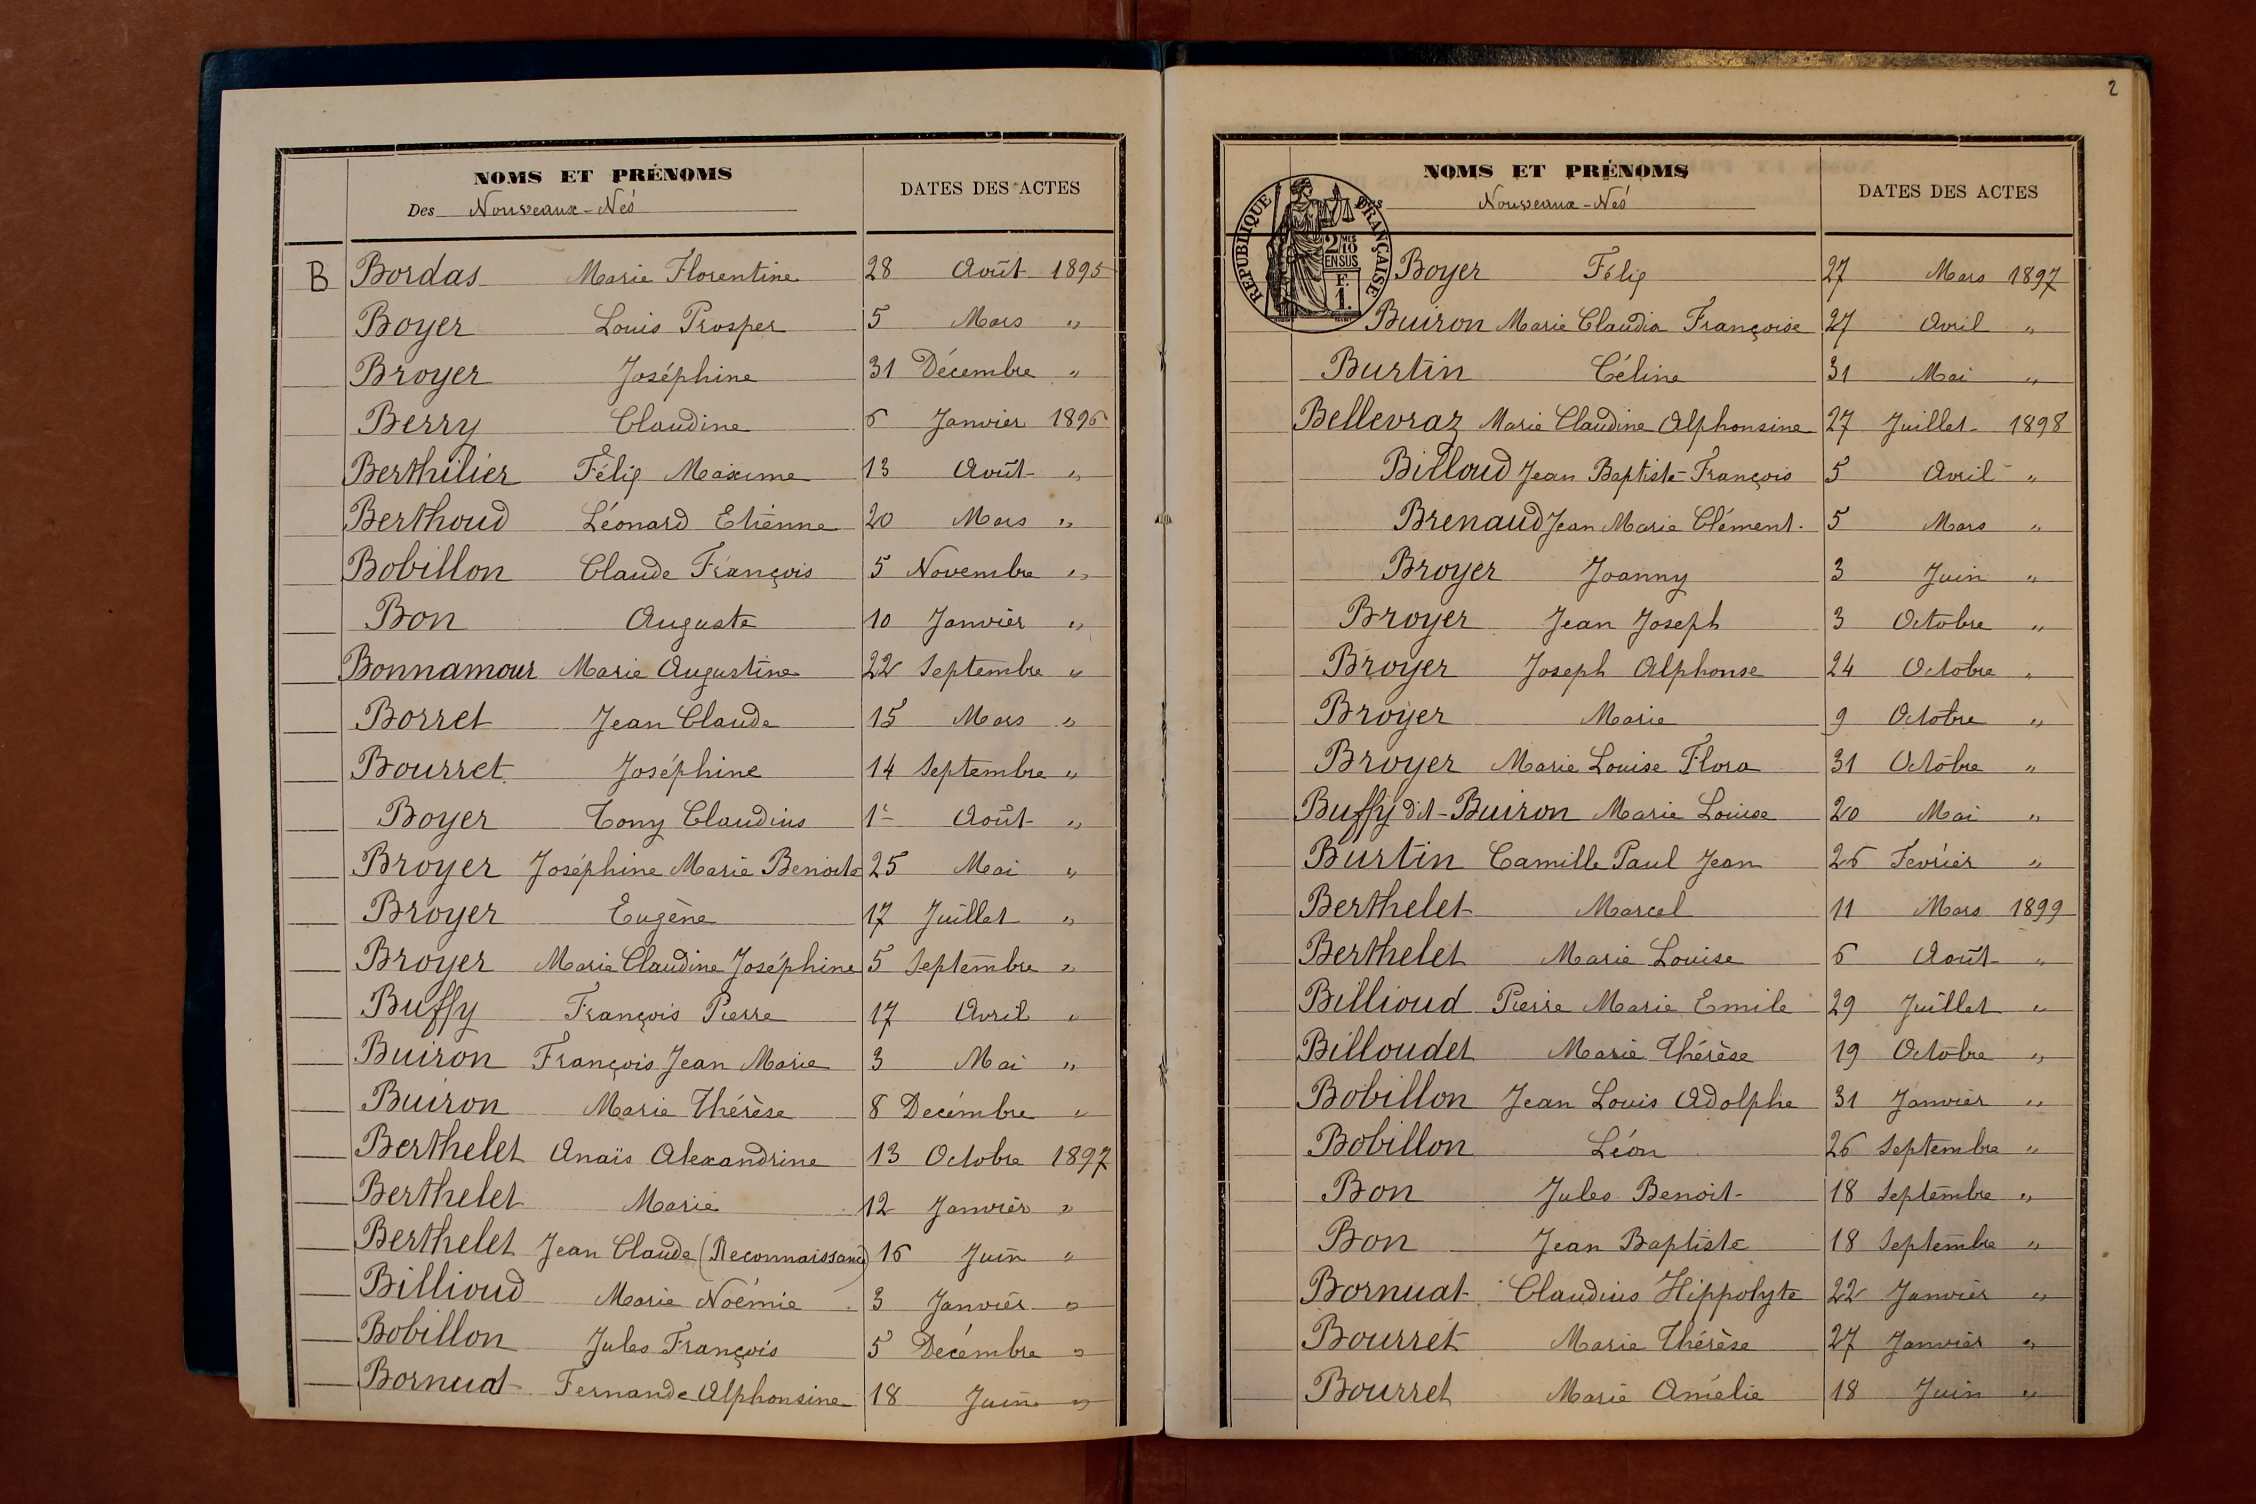 NOMS ET PRÉNOMS
DATES DES ACTES
Des Nouveaux-Nés
B Bordas Marie Florentine 28 Août 1895
Boyer Louis Prosper 5 Mars "
Broyer Joséphine 31 Décembre "
Berry Claudine 6 Janvier 1896
Berthilier Félix Maxime 13 Août "
Berthoud Léonard Etienne 20 Mars "
Bobillon Claude François 5 Novembre "
Bon Auguste 10 Janvier "
Bonnamour Marie Augustine 22 Septembre "
Borret Jean Claude 15 Mars "
Bourret Joséphine 14 Septembre "
Boyer Tony Claudius 1r Août "
Broyer Joséphine Marie Benoite 25 Mai "
Broyer Eugène 17 Juillet "
Broyer Marie Claudine Joséphine 5 Septembre "
Buffy François Pierre 17 Avril "
Buiron François Jean Marie 3 Mai "
Buiron Marie Thérèse 8 Decémbre "
Berthelet Anaïs Alexandrine 13 Octobre 1897
Berthelet Marie 12 Janvier "
Berthelet Jean Claude (Reconnaissance) 16 Juin "
Billioud Marie Noémie 3 Janvier "
Bobillon Jules François 5 Decémbre "
Bornuat Fernande Alphonsine 18 Juin "
2
NOMS ET PRÉNOMS
DATES DES ACTES
Des Nouveaux-Nés
RÉPUBLIQUE FRANÇAISE
2/10 MES
EN SUS
F.
1.
Boyer Félix 27 Mars 1897
Buiron Marie Claudia Françoise 27 Avril "
Burtin Céline 31 Mai "
Bellevraz Marie Claudine Alphonsine 27 Juillet 1898
Billoud Jean Baptiste François 5 Avril "
Brenaud Jean Marie Clément 5 Mars "
Broyer Joanny 3 Juin "
Broyer Jean Joseph 3 Octobre "
Broyer Joseph Alphonse 24 Octobre "
Broyer Marie 9 Octobre "
Broyer Marie Louise Flora 31 Octobre "
Buffy dit-Buiron Marie Louise 20 Mai "
Burtin Camille Paul Jean 26 Fevrier "
Berthelet Marcel 11 Mars 1899
Berthelet Marie Louise 6 Août "
Billioud Pierre Marie Emile 29 Juillet "
Billoudet Marie Thérèse 19 Octobre "
Bobillon Jean Louis Adolphe 31 Janvier "
Bobillon Léon 26 Septembre "
Bon Jules Benoit 18 Septembre "
Bon Jean Baptiste 18 Septembre "
Bornuat Claudius Hippolyte 22 Janvier "
Bourret Marie Thérèse 27 Janvier "
Bourret Marie Amélie 18 Juin "